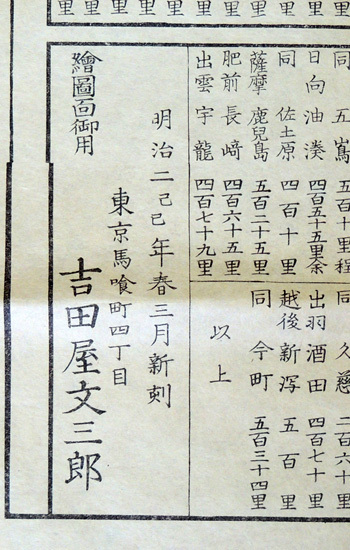 同 五嶌 五百十里程
日向油湊 四百五十五里余
同 佐土原 四百十里
薩摩 鹿兒島 五百二十五里
肥前 長﨑 四百六十五里
出雲 宇龍 四百七十九里
同 久慈 二百六十里
出羽酒田 四百七十里
越後新泻 五百里
同 今町 五百三十四里
以上
明治二己巳年春三月新刻
東京馬喰町四丁目
吉田屋文三郎
繪圖面御用